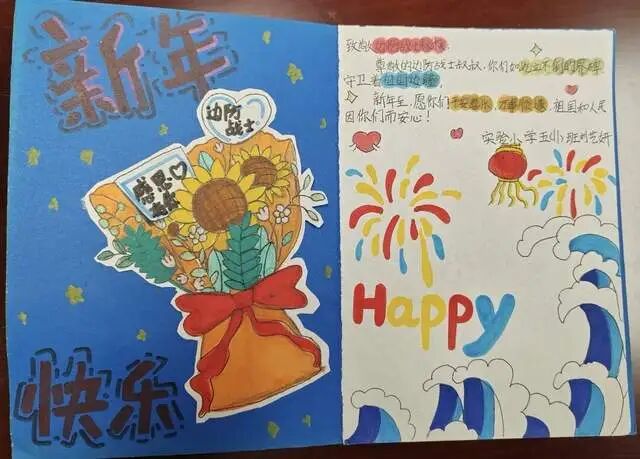 新年
快乐
边防
战士
感恩
致敬边防战士叔叔:
尊敬的边防战士叔叔,你们如永立不倒的界碑
守卫着祖国边疆,
新年至,愿你们平安喜乐,万事顺遂,祖国和人民
因你们而安心!
实验小学五(1)班刘艺妍
Happy